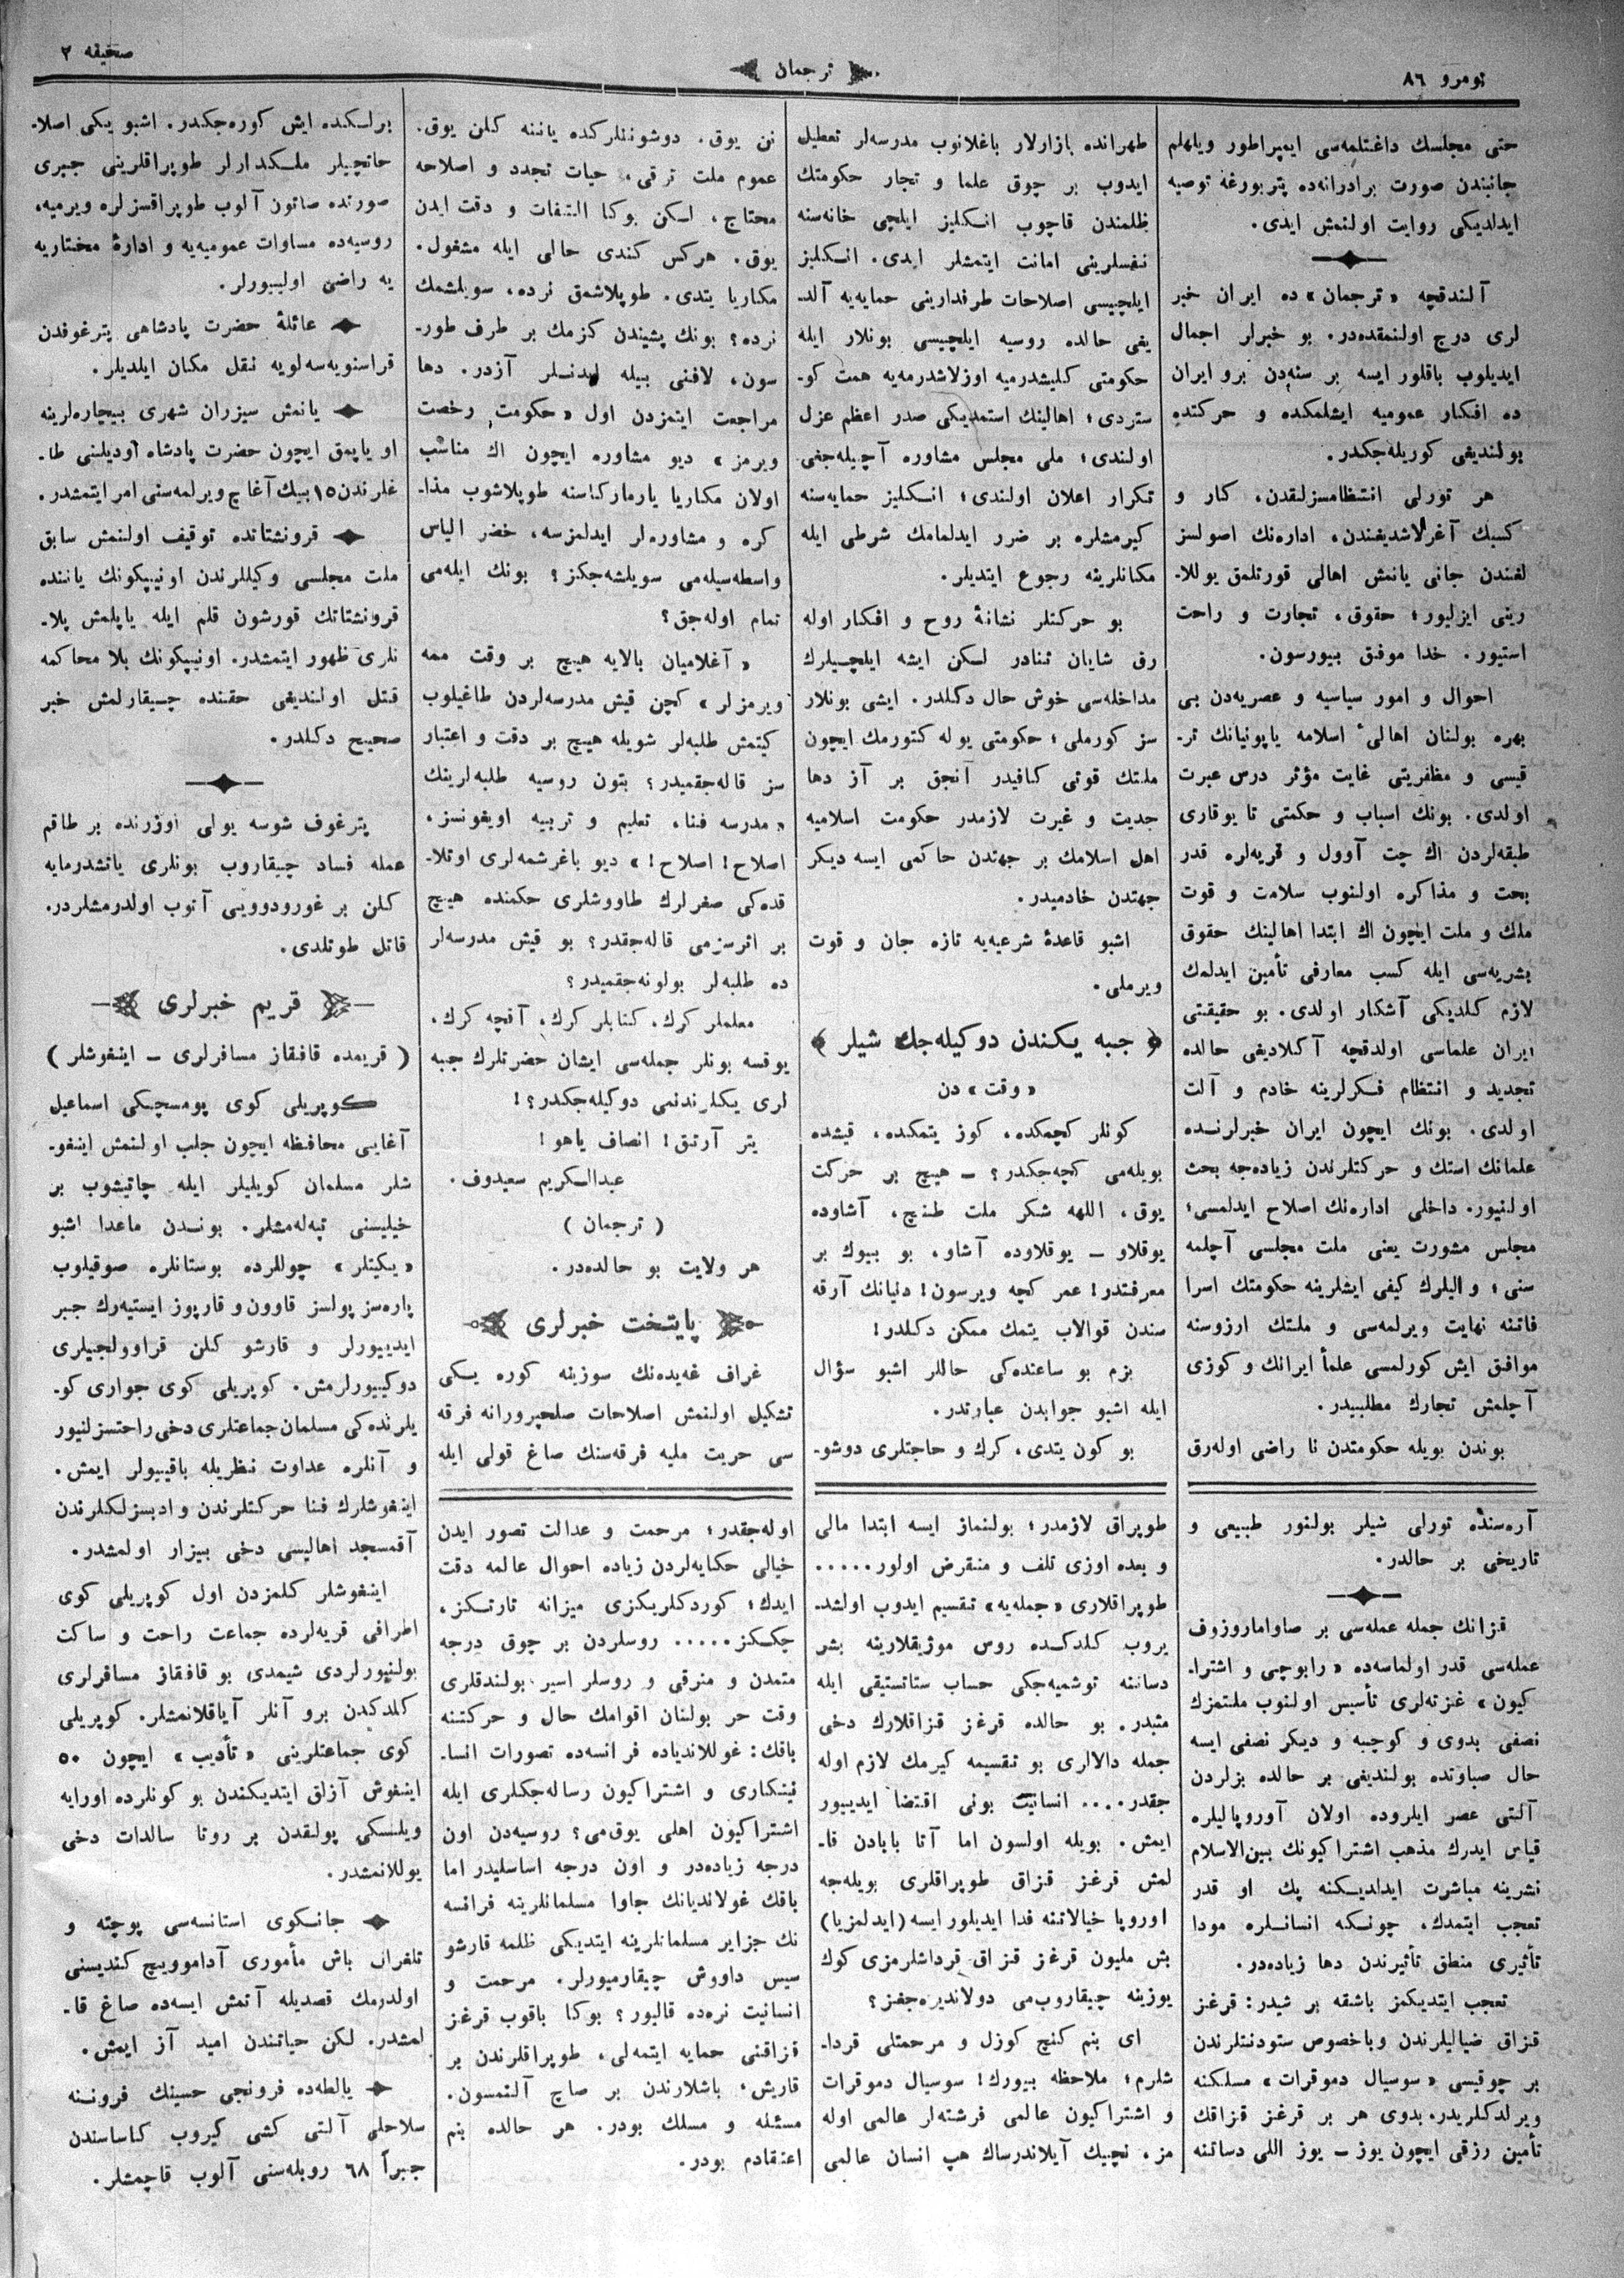 نومرو ٨٦
ترجمان
صحيفه ٢
حتى مجلسك داغتلمه‌سى ايمپراطور ويلهلم
جانبندن صورت برادرانه‌ده پتربورغه توصيه
ايدلديكى روايت اولنمش ايدى.
آلندقچه «ترجمان» ده ايران خبر
لرى درج اولنمقده‌در. بو خبرلر اجمال
ايديلوب باقلور ايسه بر سنه‌دن برو ايران
ده افكار عموميه ايشلمكده و حركتده
بولنديغى كوريله‌جكدر.
هر تورلى انتظامسزلقدن، كار و
كسبك آغرلاشديغندن، اداره‌نك اصولسز
لغندن جانى يانمش اهالى قورتلمق يوللا-
رينى ايزليور؛ حقوق، تجارت و راحت
استيور. خدا موفق بيورسون.
احوال و امور سياسيه و عصريه‌دن بى
بهره بولنان اهالىء اسلامه ياپونيانك تر-
قيسى و مظفريتى غايت مؤثر درس عبرت
اولدى. بونك اسباب و حكمتى تا يوقارى
طبقه‌لردن اك چت آوول و قريه‌لره قدر
بحت و مذاكره اولنوب سلامت و قوت
ملك و ملت ايچون اك ابتدا اهالينك حقوق
بشريه‌سى ايله كسب معارفى تأمين ايدلمك
لازم كلديكى آشكار اولدى. بو حقيقتى
ايران علماسى اولدقچه آكلاديغى حالده
تجديد و انتظام فكرلرينه خادم و آلت
اولدى. بونك ايچون ايران خبرلرنده
علمانك استك و حركتلرندن زياده‌جه بحث
اولنيور. داخلى اداره‌نك اصلاح ايدلمسى؛
مجلس مشورت يعنى ملت مجلسى آچلمه
سنى؛ واليلرك كيفى ايشلرينه حكومتك اسرا
فاتنه نهايت ويرلمه‌سى و ملتك ارزوسنه
موافق ايش كورلمسى علمأ ايرانك و كوزى
آچلمش تجارك مطلبيدر.
بوندن بويله حكومتدن نا راضى اوله‌رق
طهرانده بازارلار باغلانوب مدرسه‌لر تعطيل
ايدوب بر چوق علما و تجار حكومتك
ظلمندن قاچوب انكليز ايلچى خانه‌سنه
نفسلرينى امانت ايتمشلر ايدى. انكليز
ايلچيسى اصلاحات طرفدارينى حمايه‌يه آلد-
يغى حالده روسيه ايلچيسى بونلار ايله
حكومتى كليشدرميه اوزلاشدرمه‌يه همت كو-
ستردى؛ اهالينك استمديكى صدر اعظم عزل
اولندى؛ ملى مجلس مشاوره آچيله‌جغى
تكرار اعلان اولندى؛ انكليز حمايه‌سنه
كيرمشلره بر ضرر ايدلمامك شرطى ايله
مكانلرينه رجوع ايتديلر.
بو حركتلر نشانهٔ روح و افكار اوله
رق شايان ثنادر لكن ايشه ايلچيلرك
مداخله‌سى خوش حال دكلدر. ايشى بونلار
سز كورملى؛ حكومتى يوله كتورمك ايچون
ملتك قوتى كافيدر آنجق بر آز دها
جديت و غيرت لازمدر حكومت اسلاميه
اهل اسلامك بر جهتدن حاكمى ايسه ديكر
جهتدن خادميدر.
اشبو قاعدهٔ شرعيه‌يه تازه جان و قوت
ويرملى.
﴿ جبه يكندن دوكيله‌جك شيلر ﴾
«وقت» دن
كونلر كچمكده، كوز يتمكده، قيشده
بويله‌مى كچه‌جكدر؟ — هيچ بر حركت
يوق، اللهه شكر ملت طنچ، آشاوده
يوقلاو — يوقلاوده آشاو، بو بيوك بر
معرفتدر! عمر كچه ويرسون! دنيانك آرقه
سندن قوالاب يتمك ممكن دكلدر!
بزم بو ساعنده‌كى حاللر اشبو سؤال
ايله اشبو جوابدن عبارتدر.
بو كون يتدى، كرك و حاجتلرى دوشو-
نن يوق. دوشوننلركده ياننه كلن يوق.
عموم ملت ترقى، حيات تجدد و اصلاحه
محتاج، لكن بوكا التفات و دقت ايدن
يوق. هركس كندى حالى ايله مشغول.
مكاريا يتدى. طوپلاشمق نرده، سويلشمك
نرده؟ بونك پشيندن كزمك بر طرف طور-
سون، لافنى بيله ايدنلر آزدر. دها
مراجعت ايتمزدن اول «حكومت رخصت
ويرمز» ديو مشاوره ايچون اك مناسب
اولان مكاريا يارماركاسنه طوپلاشوب مذا-
كره و مشاوره‌لر ايدلمزسه، خضر الياس
واسطه‌سيله‌مى سويلشه‌جكز؟ بونك ايله‌مى
تمام اوله‌جق؟
«آغلاميان بالايه هيچ بر وقت ممه
ويرمزلر» كچن قيش مدرسه‌لردن طاغيلوب
كيتمش طلبه‌لر شويله هيچ بر دقت و اعتبار
سز قاله‌جقميدر؟ بتون روسيه طلبه‌لرينك
«مدرسه فنا، تعليم و تربيه اويغونسز،
اصلاح! اصلاح!» ديو باغرشمه‌لرى اوتلا-
قده‌كى صغرلرك طاووشلرى حكمنده هيچ
بر اثرسزمى قاله‌جقدر؟ بو قيش مدرسه‌لر
ده طلبه‌لر بولونه‌جقميدر؟
معلملر كرك، كتابلر كرك، آقچه كرك،
يوقسه بونلر جمله‌سى ايشان حضرتلرك جبه
لرى يكلرندنمى دوكيله‌جكدر؟!
يتر آرتق! انصاف ياهو!
عبدالكريم سعيدوف.
(ترجمان)
هر ولايت بو حالده‌در.
پايتخت خبرلرى
غراف غه‌يده‌نك سوزينه كوره يكى
تشكيل اولنمش اصلاحات صلحپرورانه فرقه
سى حريت مليه فرقه‌سنك صاغ قولى ايله
براسكده ايش كوره‌جكدر. اشبو يكى اصلا-
حاتچيلر ملكدارلر طوپراقلرينى جبرى
صورتده صاتون آلوب طوپراقسزلره ويرميه،
روسيه‌ده مساوات عموميه‌يه و ادارهٔ مختاريه
يه راضى اوليبورلر.
عائلهٔ حضرت پادشاهى پترغوفدن
قراسنويه‌سه‌لويه نقل مكان ايلديلر.
يانمش سيزران شهرى بيچاره‌لرينه
او ياپمق ايچون حضرت پادشاه آوديلنى طا-
غلرندن ١٥ بيك آغاچ ويرلمه‌سنى امر ايتمشدر.
قرونشتاتده توقيف اولنمش سابق
ملت مجلسى وكيللرندن اونيپكونك ياننده
قرونشتاتك قورشون قلم ايله ياپلمش پلا-
نلرى ظهور ايتمشدر. اونيپكونك بلا محاكمه
قتل اولنديغى حقنده چيقارلمش خبر
صحيح دكلدر.
پترغوف شوسه يولى اوزرنده بر طاقم
عمله فساد چيقاروب بونلرى ياتشدرمايه
كلن بر غورودوويى آتوب اولدرمشلردر.
قاتل طوتلدى.
قريم خبرلرى
(قريمده قافقاز مسافرلرى — اينغوشلر)
كوپريلى كوى پومسچيكى اسماعيل
آغايى محافظه ايچون جلب اولنمش اينغو-
شلر مسلمان كويليلر ايله چاتيشوب بر
خيليسنى تپه‌له‌مشلر. بوندن ماعدا اشبو
«يكيتلر» چوللرده بوستانلره صوقيلوب
پاره‌سز پولسز قاوون و قارپوز ايستيه‌رك جبر
ايدييورلر و قارشو كلن قراوولجيلرى
دوكييورلرمش. كوپريلى كوى جوارى كو-
يلرنده‌كى مسلمان جماعتلرى دخى راحتسزلنيور
و آنلره عداوت نظريله باقييولر ايمش.
اينغوشلرك فنا حركتلرندن و ادبسزلكلرندن
آقمسجد اهاليسى دخى بيزار اولمشدر.
اينغوشلر كلمزدن اول كوپريلى كوى
اطرافى قريه‌لرده جماعت راحت و ساكت
بولنيورلردى شيمدى بو قافقاز مسافرلرى
كلدكدن برو آنلر آياقلانمشلر. كوپريلى
كوى جماعتلرينى «تأديب» ايچون ٥٠
اينغوش آزلق ايتديكندن بو كونلرده اورايه
ويلسكى پولقدن بر روتا سالدات دخى
يوللانمشدر.
جانكوى استانسه‌سى پوچته و
تلغراف باش مأمورى آداموويچ كنديسنى
اولدرمك قصديله آتمش ايسه‌ده صاغ قا-
لمشدر. لكن حياتندن اميد آز ايمش.
يالطه‌ده فرونجى حسينك فروننه
سلاحلى آلتى كشى كيروب كاساسندن
جبراً ٦٨ روبله‌سنى آلوب قاچمشلر.
آره‌سنده تورلى شيلر بولنور طبيعى و
تاريخى بر حالدر.
قزانك جمله عمله‌سى بر صاواماروزوف
عمله‌سى قدر اولماسه‌ده «رابوچى و اشترا-
كيون» غزته‌لرى تأسيس اولنوب ملتمزك
نصفى بدوى و كوچبه و ديكر نصفى ايسه
حال صباوتده بولنديغى بر حالده بزلردن
آلتى عصر ايلروده اولان آوروپاليلره
قياس ايدرك مذهب اشتراكيونك بين‌الاسلام
نشرينه مباشرت ايدلديكنه پك او قدر
تعجب ايتمدك، چونكه انسانلره مودا
تأثيرى منطق تأثيرندن دها زياده‌در.
تعجب ايتديكمز باشقه بر شيدر: قرغز
قزاق ضياليلرندن و باخصوص ستودنتلرندن
بر چوقيسى «سوسيال دموقرات» مسلكنه
ويرلدكلريدر. بدوى هر بر قرغز قزاقك
تأمين رزقى ايچون يوز — يوز اللى دساتنه
طوپراق لازمدر؛ بولنماز ايسه ابتدا مالى
و بعده اوزى تلف و منقرض اولور.....
طوپراقلارى «جمله‌يه» تقسيم ايدوب اولشد-
يروب كلدكده روس موژيقلارينه بشر
دساتنه توشميه‌جكى حساب ستاتستيقى ايله
مثبدر. بو حالده قرغز قزاقلارك دخى
جمله دالالارى بو تقسيمه كيرمك لازم اوله
جقدر.... انسانيت بونى اقتضا ايدييور
ايمش. بويله اولسون اما آتا بابادن قا-
لمش قرغز قزاق طوپراقلرى بويله‌جه
اوروپا خيالاتنه فدا ايديلور ايسه (ايدلمزيا)
بش مليون قرغز قزاق قرداشلرمزى كوك
يوزينه چيقاروب‌مى دولانديره‌جغز؟
اى بنم كنچ كوزل و مرحمتلى قردا-
شلرم؛ ملاحظه بيورك! سوسيال دموقرات
و اشتراكيون عالمى فرشته‌لر عالمى اوله
مز، نچيك آيلاندرساك هپ انسان عالمى
اوله‌جقدر؛ مرحمت و عدالت تصور ايدن
خيالى حكايه‌لردن زياده احوال عالمه دقت
ايدك؛ كوردكلريكزى ميزانه تارتكز،
چككز..... روسلردن بر چوق درجه
متمدن و مترقى و روسلر اسير بولندقلرى
وقت حر بولنان اقوامك حال و حركتنه
باقك: غوللانديا‌ده فرانسه‌ده تصورات انسا-
نيتكارى و اشتراكيون رساله‌جكلرى ايله
اشتراكيون اهلى يوق‌مى؟ روسيه‌دن اون
درجه زياده‌در و اون درجه اساسليدر اما
باقك غولانديانك جاوا مسلمانلرينه فرانسه
نك جزاير مسلمانلرينه ايتديكى ظلمه قارشو
سيس داووش چيقارميورلر. مرحمت و
انسانيت نره‌ده قاليور؟ بوكا باقوب قرغز
قزاقنى حمايه ايتمه‌لى، طوپراقلرندن بر
قاريش، باشلارندن بر صاچ آلنمسون.
مسئله و مسلك بودر. هر حالده بنم
اعتقادم بودر.